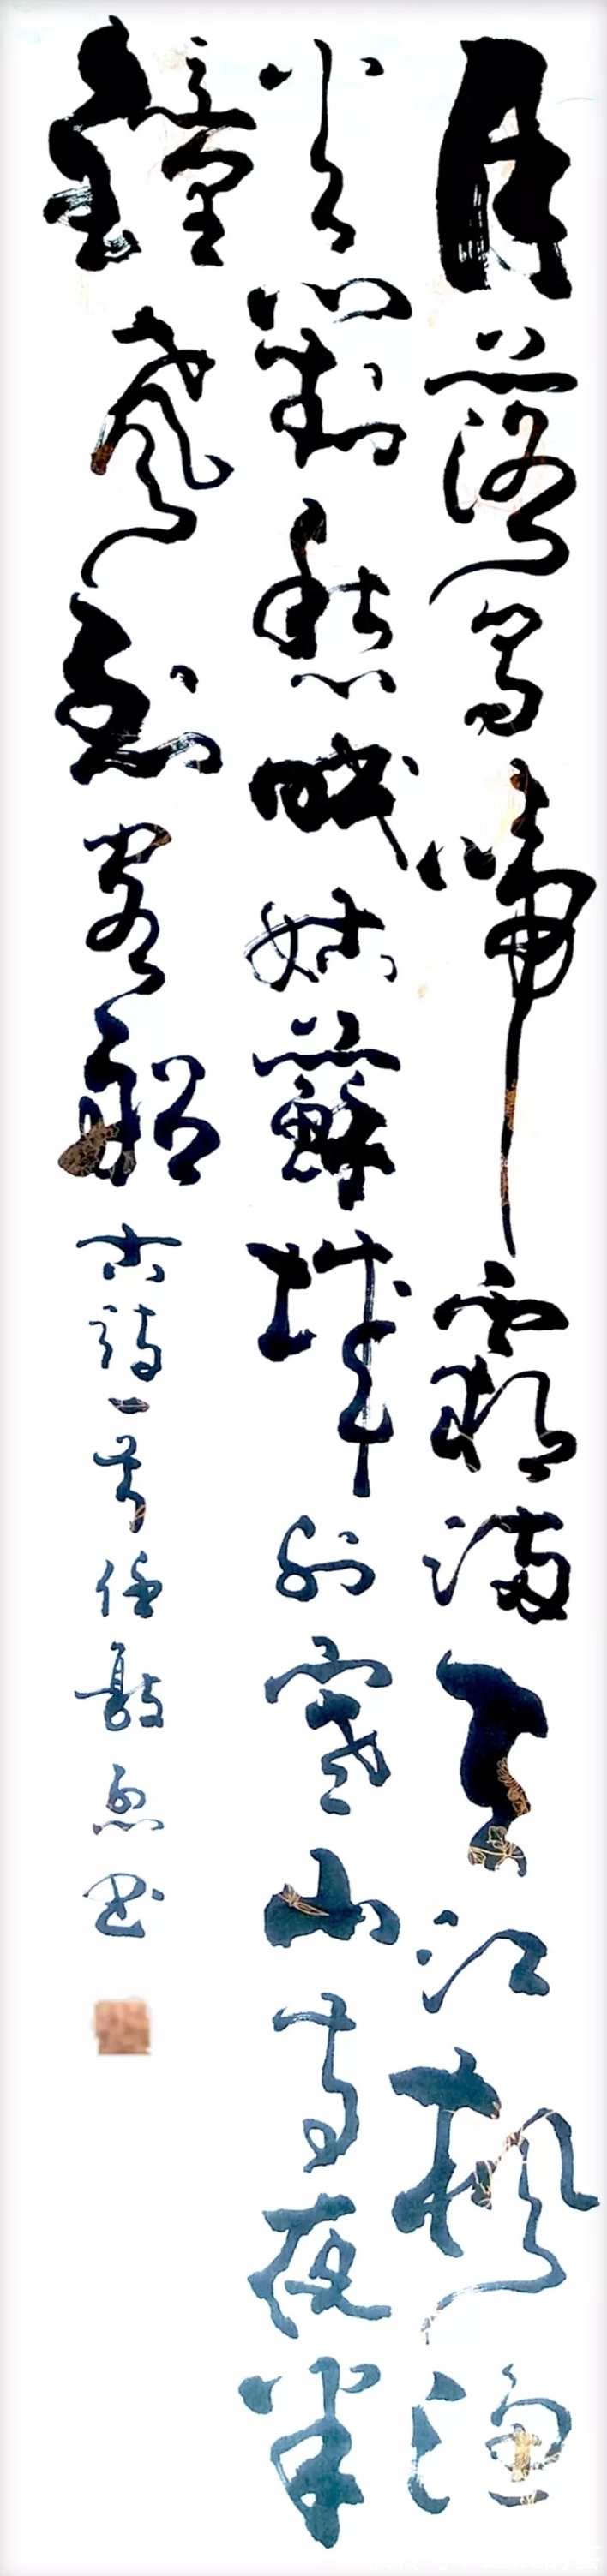 月落烏啼霜滿天江楓漁
火對愁眠姑蘇城外寒山寺夜半
鐘聲到客船古詩一首任书